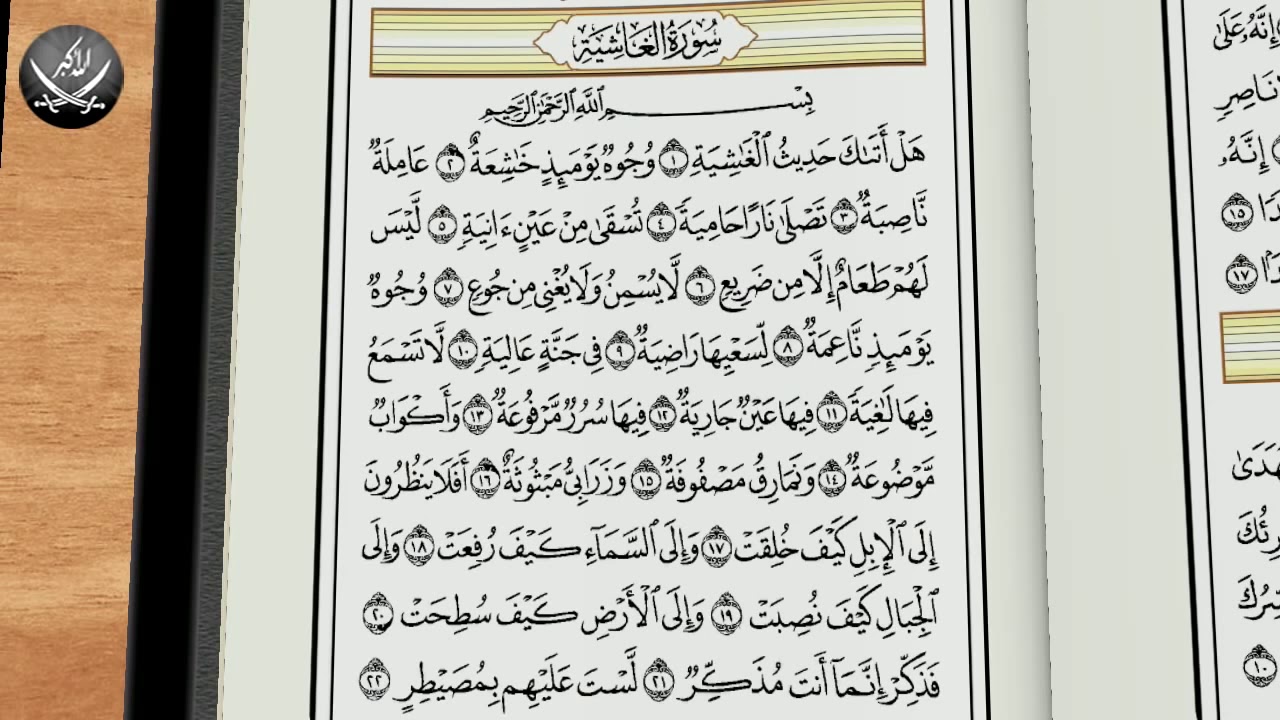 الله أكبر
سُورَةُ الغَاشِيَةِ
بِسْمِ اللَّهِ الرَّحْمَٰنِ الرَّحِيمِ
هَلْ أَتَىٰكَ حَدِيثُ ٱلْغَٰشِيَةِ ١ وُجُوهٌ يَوْمَئِذٍ خَٰشِعَةٌ ٢ عَامِلَةٌ
نَّاصِبَةٌ ٣ تَصْلَىٰ نَارًا حَامِيَةً ٤ تُسْقَىٰ مِنْ عَيْنٍ ءَانِيَةٍ ٥ لَّيْسَ
لَهُمْ طَعَامٌ إِلَّا مِن ضَرِيعٍ ٦ لَّا يُسْمِنُ وَلَا يُغْنِى مِن جُوعٍ ٧ وُجُوهٌ
يَوْمَئِذٍ نَّاعِمَةٌ ٨ لِّسَعْيِهَا رَاضِيَةٌ ٩ فِى جَنَّةٍ عَالِيَةٍ ١٠ لَّا تَسْمَعُ
فِيهَا لَٰغِيَةً ١١ فِيهَا عَيْنٌ جَارِيَةٌ ١٢ فِيهَا سُرُرٌ مَّرْفُوعَةٌ ١٣ وَأَكْوَابٌ
مَّوْضُوعَةٌ ١٤ وَنَمَارِقُ مَصْفُوفَةٌ ١٥ وَزَرَابِىُّ مَبْثُوثَةٌ ١٦ أَفَلَا يَنظُرُونَ
إِلَى ٱلْإِبِلِ كَيْفَ خُلِقَتْ ١٧ وَإِلَى ٱلسَّمَآءِ كَيْفَ رُفِعَتْ ١٨ وَإِلَى
ٱلْجِبَالِ كَيْفَ نُصِبَتْ ١٩ وَإِلَى ٱلْأَرْضِ كَيْفَ سُطِحَتْ ٢٠
فَذَكِّرْ إِنَّمَآ أَنتَ مُذَكِّرٌ ٢١ لَّسْتَ عَلَيْهِم بِمُصَيْطِرٍ ٢٢
وَإِنَّهُۥ عَلَىٰ
نَاصِرٍ
إِنَّهُۥ
١٥
١٧
١٠